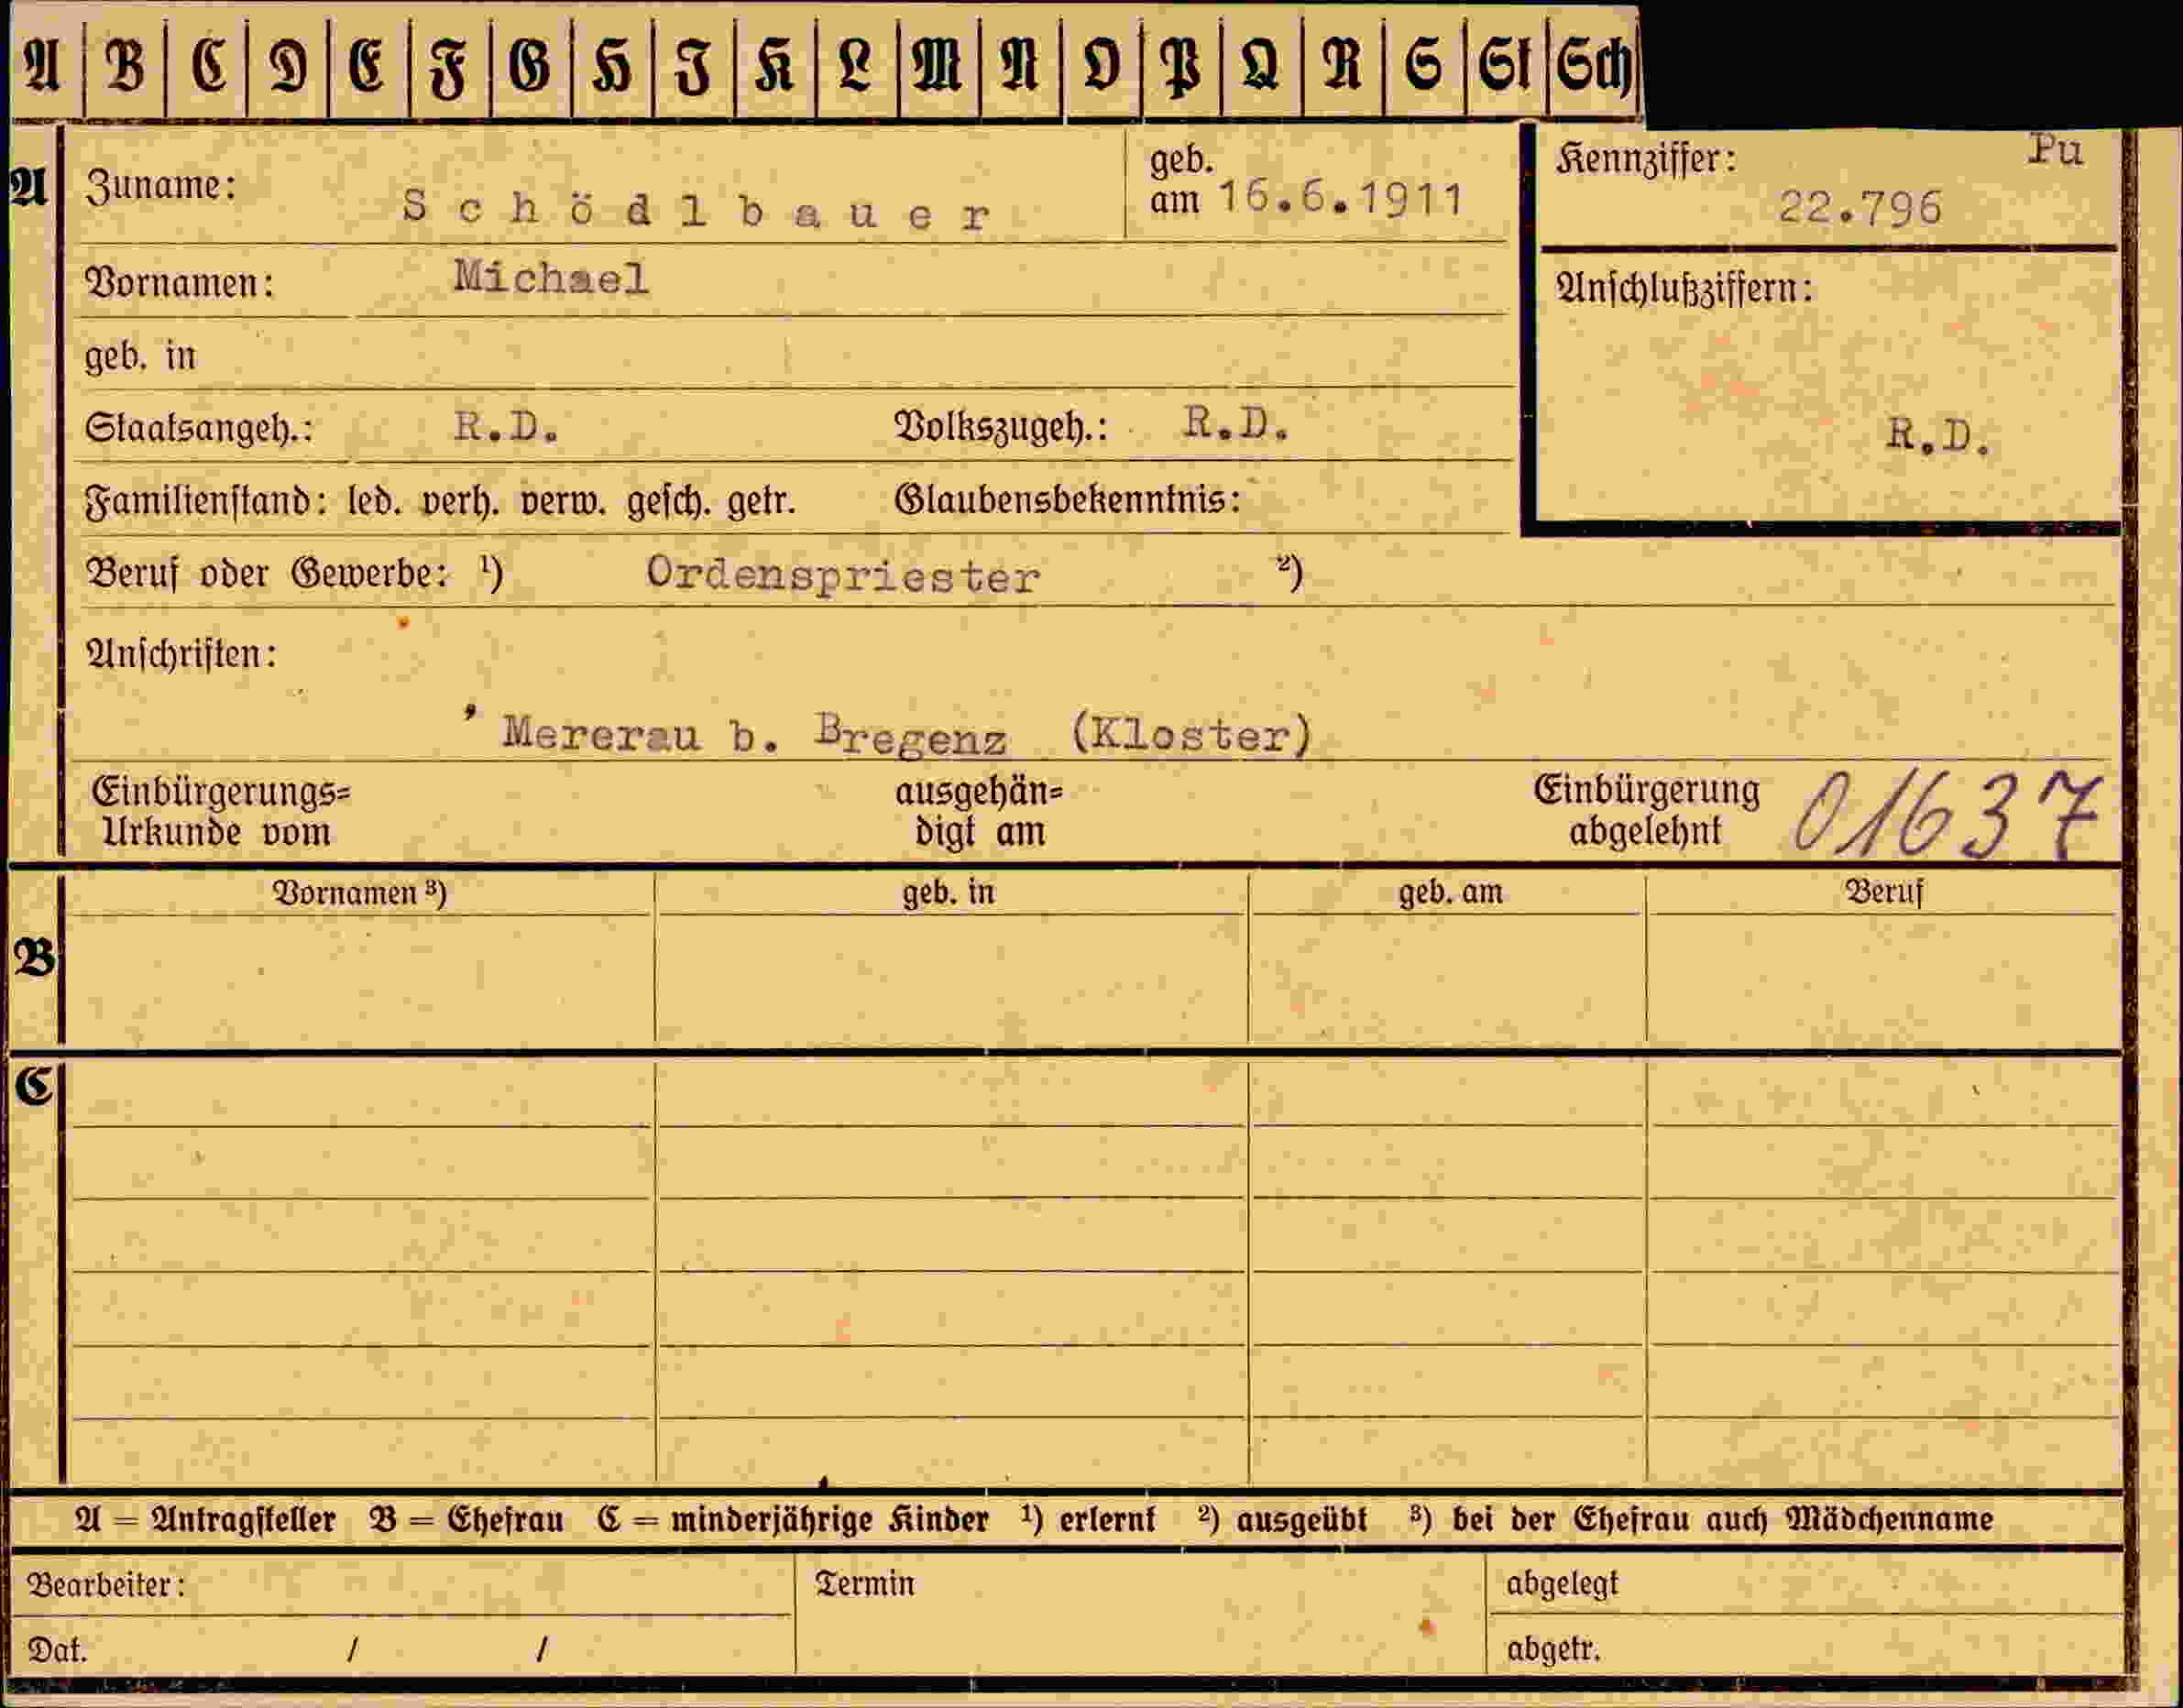 A B C D E F G H I K L M N O P Q R S St Sch
A Zuname: Schödlbauer geb. am 16.6.1911
Kennziffer: Pu
22.796
Vornamen: Michael
Anschlußziffern:
geb. in
Staatsangeh.: R.D. Volkszugeh.: R.D.
R.D.
Familienstand: led. verh. verw. gesch. getr. Glaubensbekenntnis:
Beruf oder Gewerbe: ¹) Ordenspriester ²)
Anschriften:
Mererau b. Bregenz (Kloster)
Einbürgerungs= ausgehän= Einbürgerung 01637
Urkunde vom digt am abgelehnt
Vornamen ³) geb. in geb. am Beruf
B
C
A = Antragsteller B = Ehefrau C = minderjährige Kinder ¹) erlernt ²) ausgeübt ³) bei der Ehefrau auch Mädchenname
Bearbeiter: Termin abgelegt
Dat. / / abgetr.